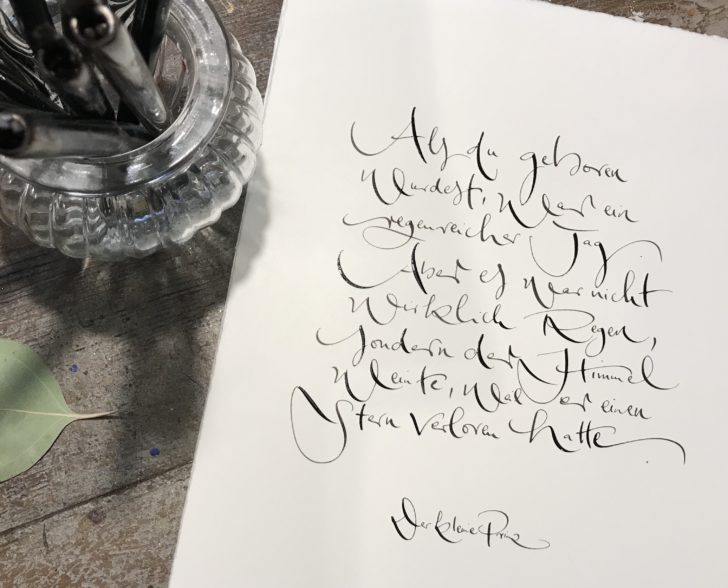 Als du geboren
wurdest, war ein
regenreicher Tag.
Aber es war nicht
wirklich Regen,
sondern der Himmel
weinte, weil er einen
Stern verloren hatte.
Der kleine Prinz